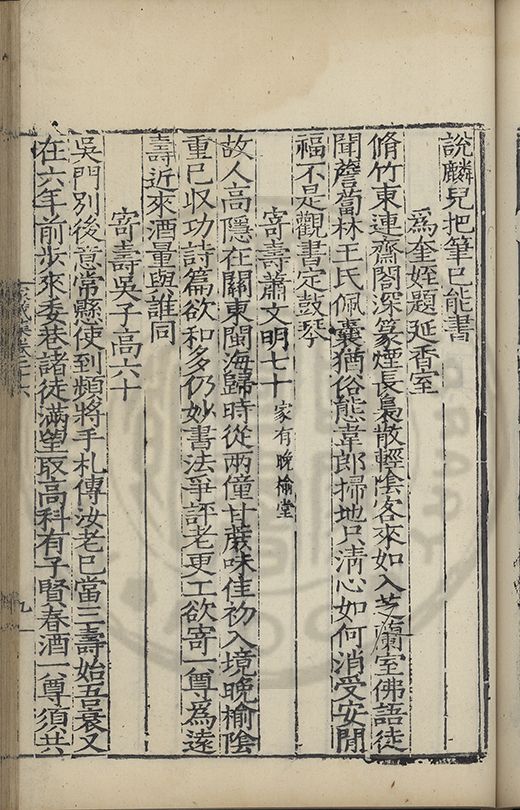 說麟兒把筆已能書
爲奎姪題延香室
脩竹東連齋閤深篆煙長裊散輕陰客來如入芝蘭室佛語徒
聞薝蔔林王氏佩囊猶俗態韋郎掃地只清心如何消受安閒
福不是觀書定鼓琴
寄壽蕭文明七十家有晚榆堂
故人高隱在關東閩海歸時從兩僮甘蔗味佳初入境晚榆陰
重已收功詩篇欲和多仍妙書法爭評老更工欲寄一尊爲遠
壽近來酒量與誰同
寄壽吳子高六十
吳門別後意常懸使到頻將手札傳汝老已當三壽始吾衰又
在六年前步來委巷諸徒滿望取高科有子賢春酒一尊須共
九